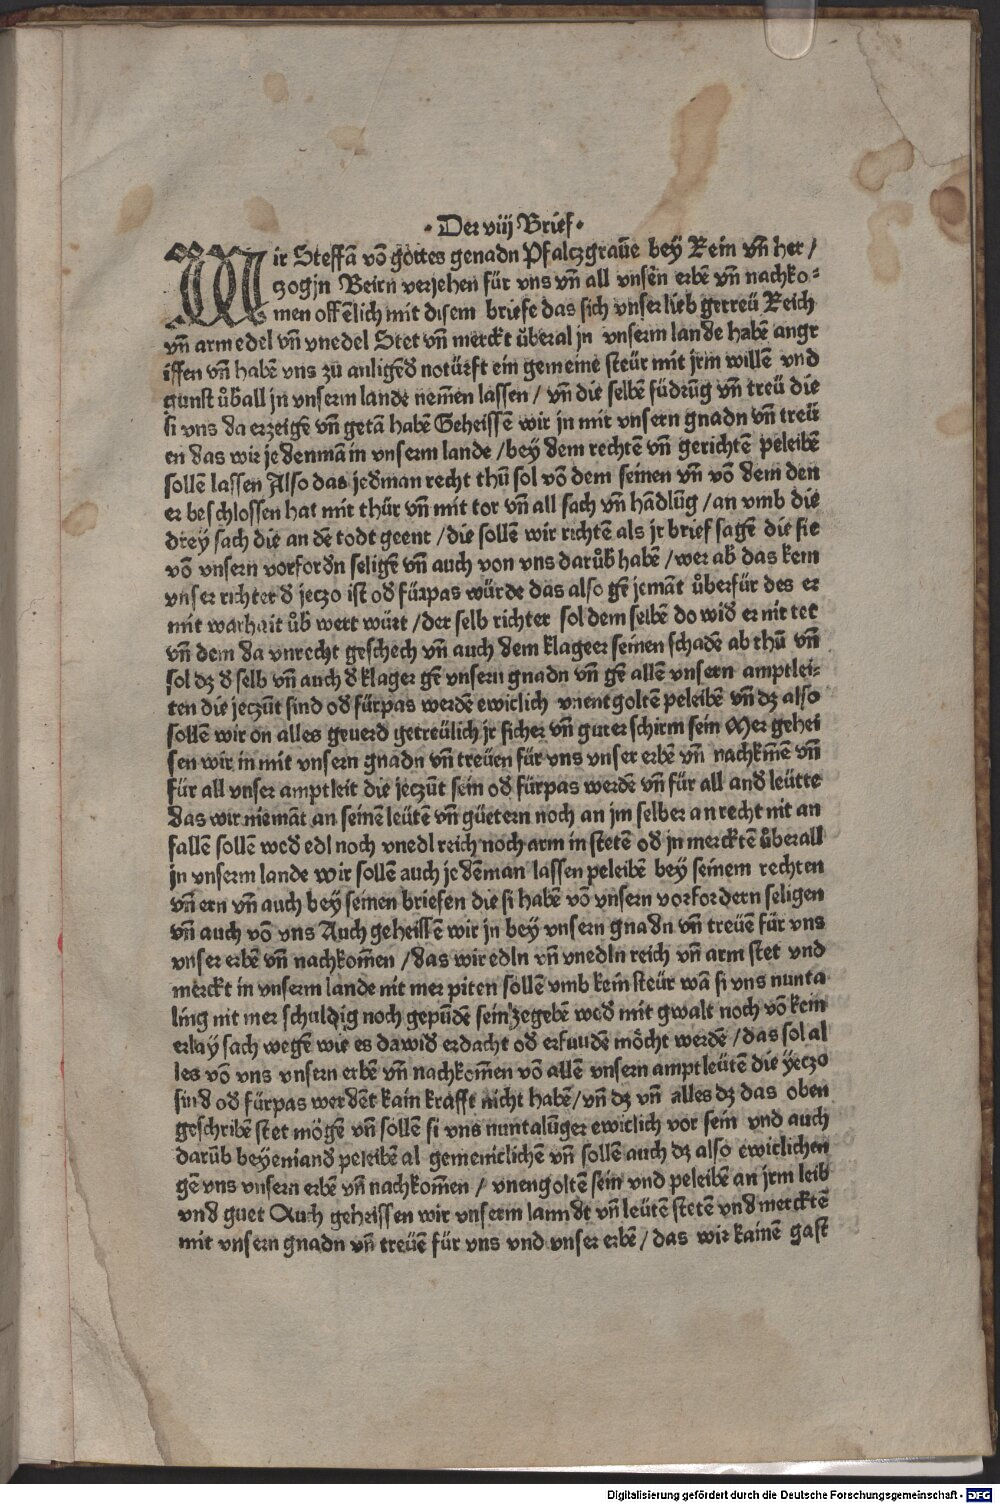 · Der viij Brief ·
Wir Steffã võ gottes genadn Pfalczgraue bey Rein vñ her /
czog jn Beirn veriehen für vns vñ all vnsẽn erbẽ vñ nachko⸗
men offẽlich mit disem briefe das sich vnser lieb getreü Reich
vñ arm edel vñ vnedel Stet vñ merckt überal jn vnserm lande habẽ angr
iffen vñ habẽ vns zü anligẽd notürft ein gemeine steür mit jrm willẽ vnd
gunst üball jn vnserm lande nemen lassen / vñ die selbẽ füdrũg vñ treü die
si vns da erzeigẽ vñ getã habẽ Geheissẽ wir jn mit vnsern gnadn vñ treü
en das wir jedenmã in vnserm lande / bey dem rechtẽ vñ gerichtẽ peleibẽ
sollẽ lassen Also das jedman recht thü sol võ dem seinen vñ võ dem den
er beschlossen hat mit thür vñ mit tor vñ all sach vñ hãdlũg / an vmb die
drey sach die an dẽ todt geent / die sollẽ wir richtẽ als jr brief sagẽ die sie
võ vnsern vorfordn seligẽ vñ auch von vns darůb habẽ / wer ab das kem
vnser richter d jeczo ist od fürpas würde das also gẽ jemãt überfür des er
mit warhait üb wert würt / der selb richter sol dem selbẽ do wid er nit tet
vñ dem da vnrecht geschech vñ auch dem klageer seinen schadẽ ab thü vñ
sol dz d selb vñ auch d klager gẽ vnsern gnadn vñ gẽ allẽ vnsern amptlei⸗
ten die jeczũt sind od fürpas werdẽ ewiclich vnentgoltẽ peleibẽ vñ dz also
sollẽ wir on alles geuerd getreülich jr sicher vñ guter schirm sein Mer gehei
sen wir in mit vnsern gnadn vñ treüen für vns vnser erbẽ vñ nachkmẽ vñ
für all vnser amptleit die jeczũt sein od fürpas werdẽ vñ für all and leütte
das wir niemãt an seinẽ leütẽ vñ güetern noch an jm selber an recht nit an
fallẽ sollẽ wed edl noch vnedl reich noch arm in stetẽ od jn mercktẽ überall
jn vnserm lande wir sollẽ auch jedẽman lassen peleibẽ bey seinem rechten
vñ ern vñ auch bey seinen briefen die si habẽ võ vnsern vorfordern seligen
vñ auch võ vns Auch geheissẽ wir jn bey vnsern gnadn vñ treüẽ für vns
vnser erbẽ vñ nachkom̃en / das wir edln vñ vnedln reich vñ arm stet vnd
merckt in vnserm lande nit mer piten sollẽ vmb kein steür wã si vns nunta
ling nit mer schuldig noch gepũdẽ sein zegebẽ wed mit gwalt noch võ kein
erlay sach wegẽ wie es dawid erdacht od erfundẽ möcht werdẽ / das sol al
les võ vns vnsern erbẽ vñ nachkom̃en võ allẽ vnsern amptleütẽ die yeczo
sind od fürpas werdẽt kain krafft nicht habẽ / vñ dz vñ alles dz das oben
geschribẽ stet mögẽ vñ sollẽ si vns nuntalũger ewiclich vor sein vnd auch
darüb beyeinand peleibẽ al gemeiniclichẽ vñ sollẽ auch dz also ewiclichen
gẽ vns vnsern erbẽ vñ nachkom̃en / vnengoltẽ sein vnd peleibẽ an jrm leib
vnd guet Auch geheissen wir vnserm lanndt vñ leütẽ stetẽ vnd mercktẽ
mit vnsern gnadn vñ treüẽ für vns vnd vnser erbẽ / das wir kainẽ gast
Digitalisierung gefördert durch die Deutsche Forschungsgemeinschaft - DFG